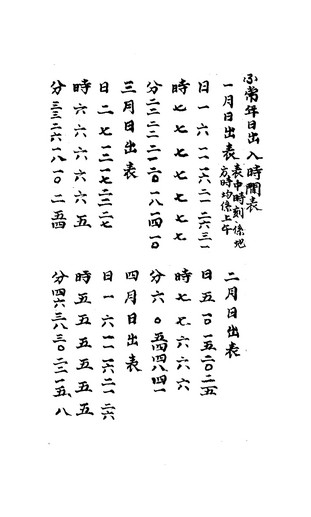 常年日出入時間表
一月日出表
表中時刻係地
方時均係上午
日 一 六 一一 一六 二一 二六 三一
時 七 七 七 七 七 七 七
分 二二 二二 二一 二〇 一八 一四 一〇
二月日出表
日 五 一〇 一五 二〇 二五
時 七 七 六 六 六
分 六 〇 五四 四八 四一
三月日出表
日 二 七 一二 一七 二二 二七
時 六 六 六 六 六 五
分 三三 二六 一八 一〇 二 五四
四月日出表
日 一 六 一一 一六 二一 二六
時 五 五 五 五 五 五
分 四六 三八 三〇 二二 一五 八